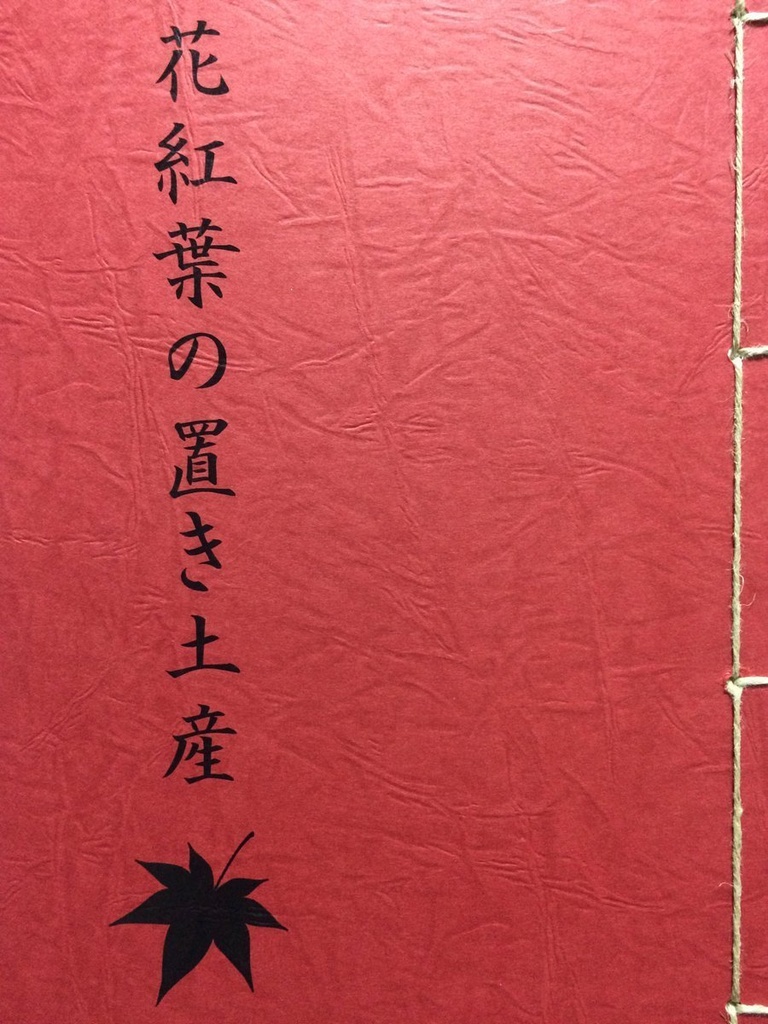 花紅葉の置き土産